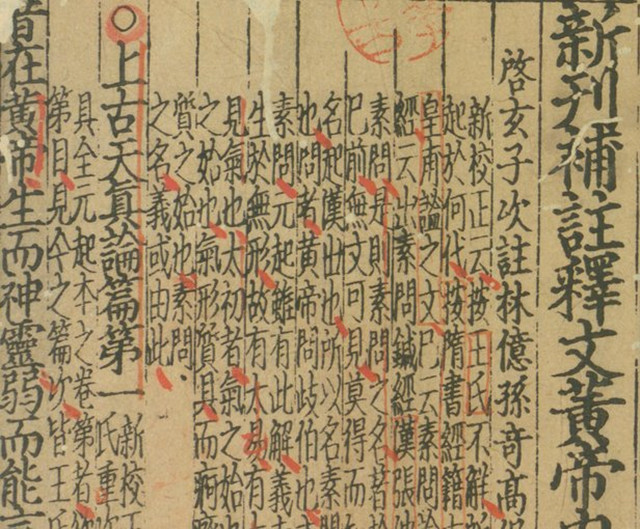 新刊補註釋文黃帝內
啓玄子次註林億孫奇高
新校正云按王氏不解
起於何代按隋書經籍
皇甫謐之文已云素問
經云出素問鍼經漢張
素問是則素問之名著
已前無文可見莫得而
名起漢世也所以名素
也問者黃帝問歧伯也
素問元起雖有此解義
生於無形故有太易有
見氣也太初者氣之始
之始也氣形質具而痾
質之始也素問
之名義或由此
上古天真論篇第一
新校正
氏重
具全元起本之卷第者
第目見今之篇次皆王氏
昔在黃帝生而神靈弱而能言